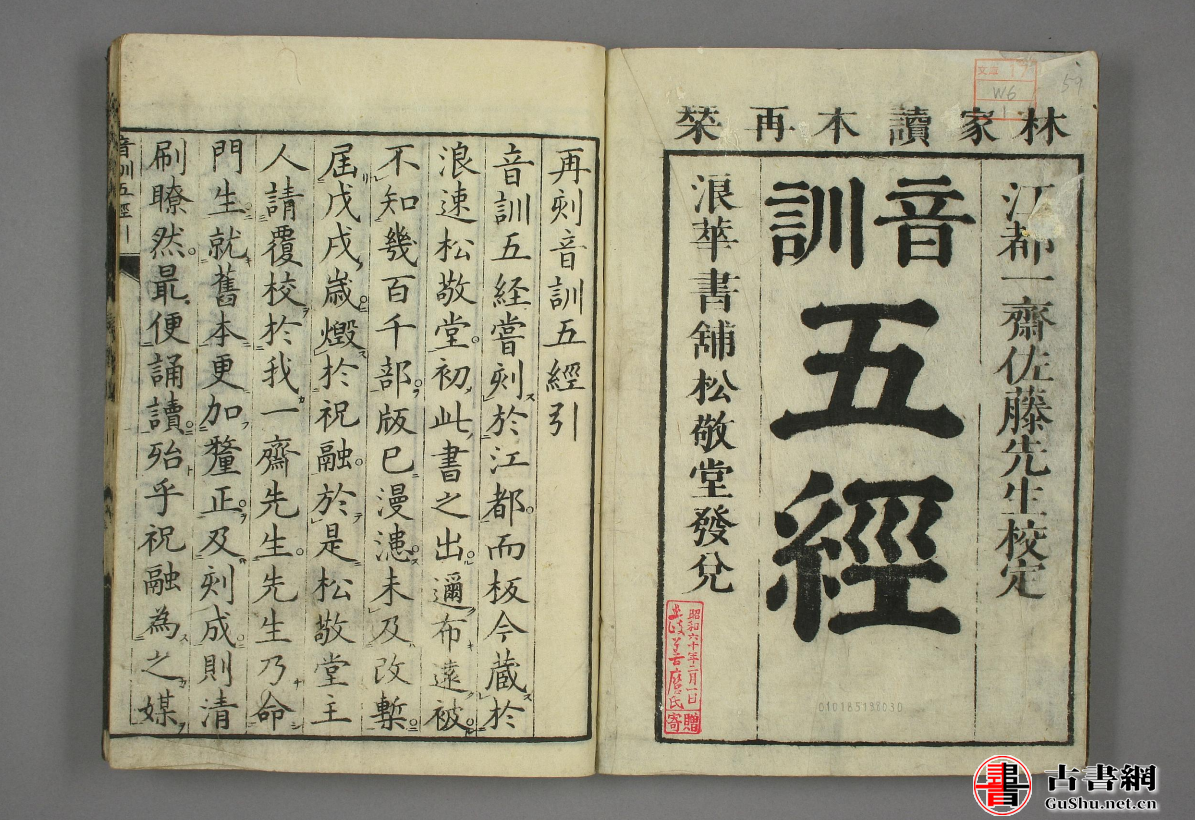 林家讀本再栞
江都一齋佐藤先生校定
音訓
五經
浪華書舖松敬堂發兌
昭和六十年二月一日
土岐善麿氏
寄贈
W6
59
010185138030
再刻音訓五經引
音訓五経嘗刻於江都而板今蔵於
浪速松敬堂初此書之出邇布遠被
不知幾百千部版已漫漶未及改槧
屆戊戌歳燬於祝融於是松敬堂主
人請覆校於我一齋先生先生乃命
門生就舊本更加釐正及刻成則清
刷瞭然最便誦讀殆乎祝融為之媒
音訓五經引
古書網
GuShu.net.cn